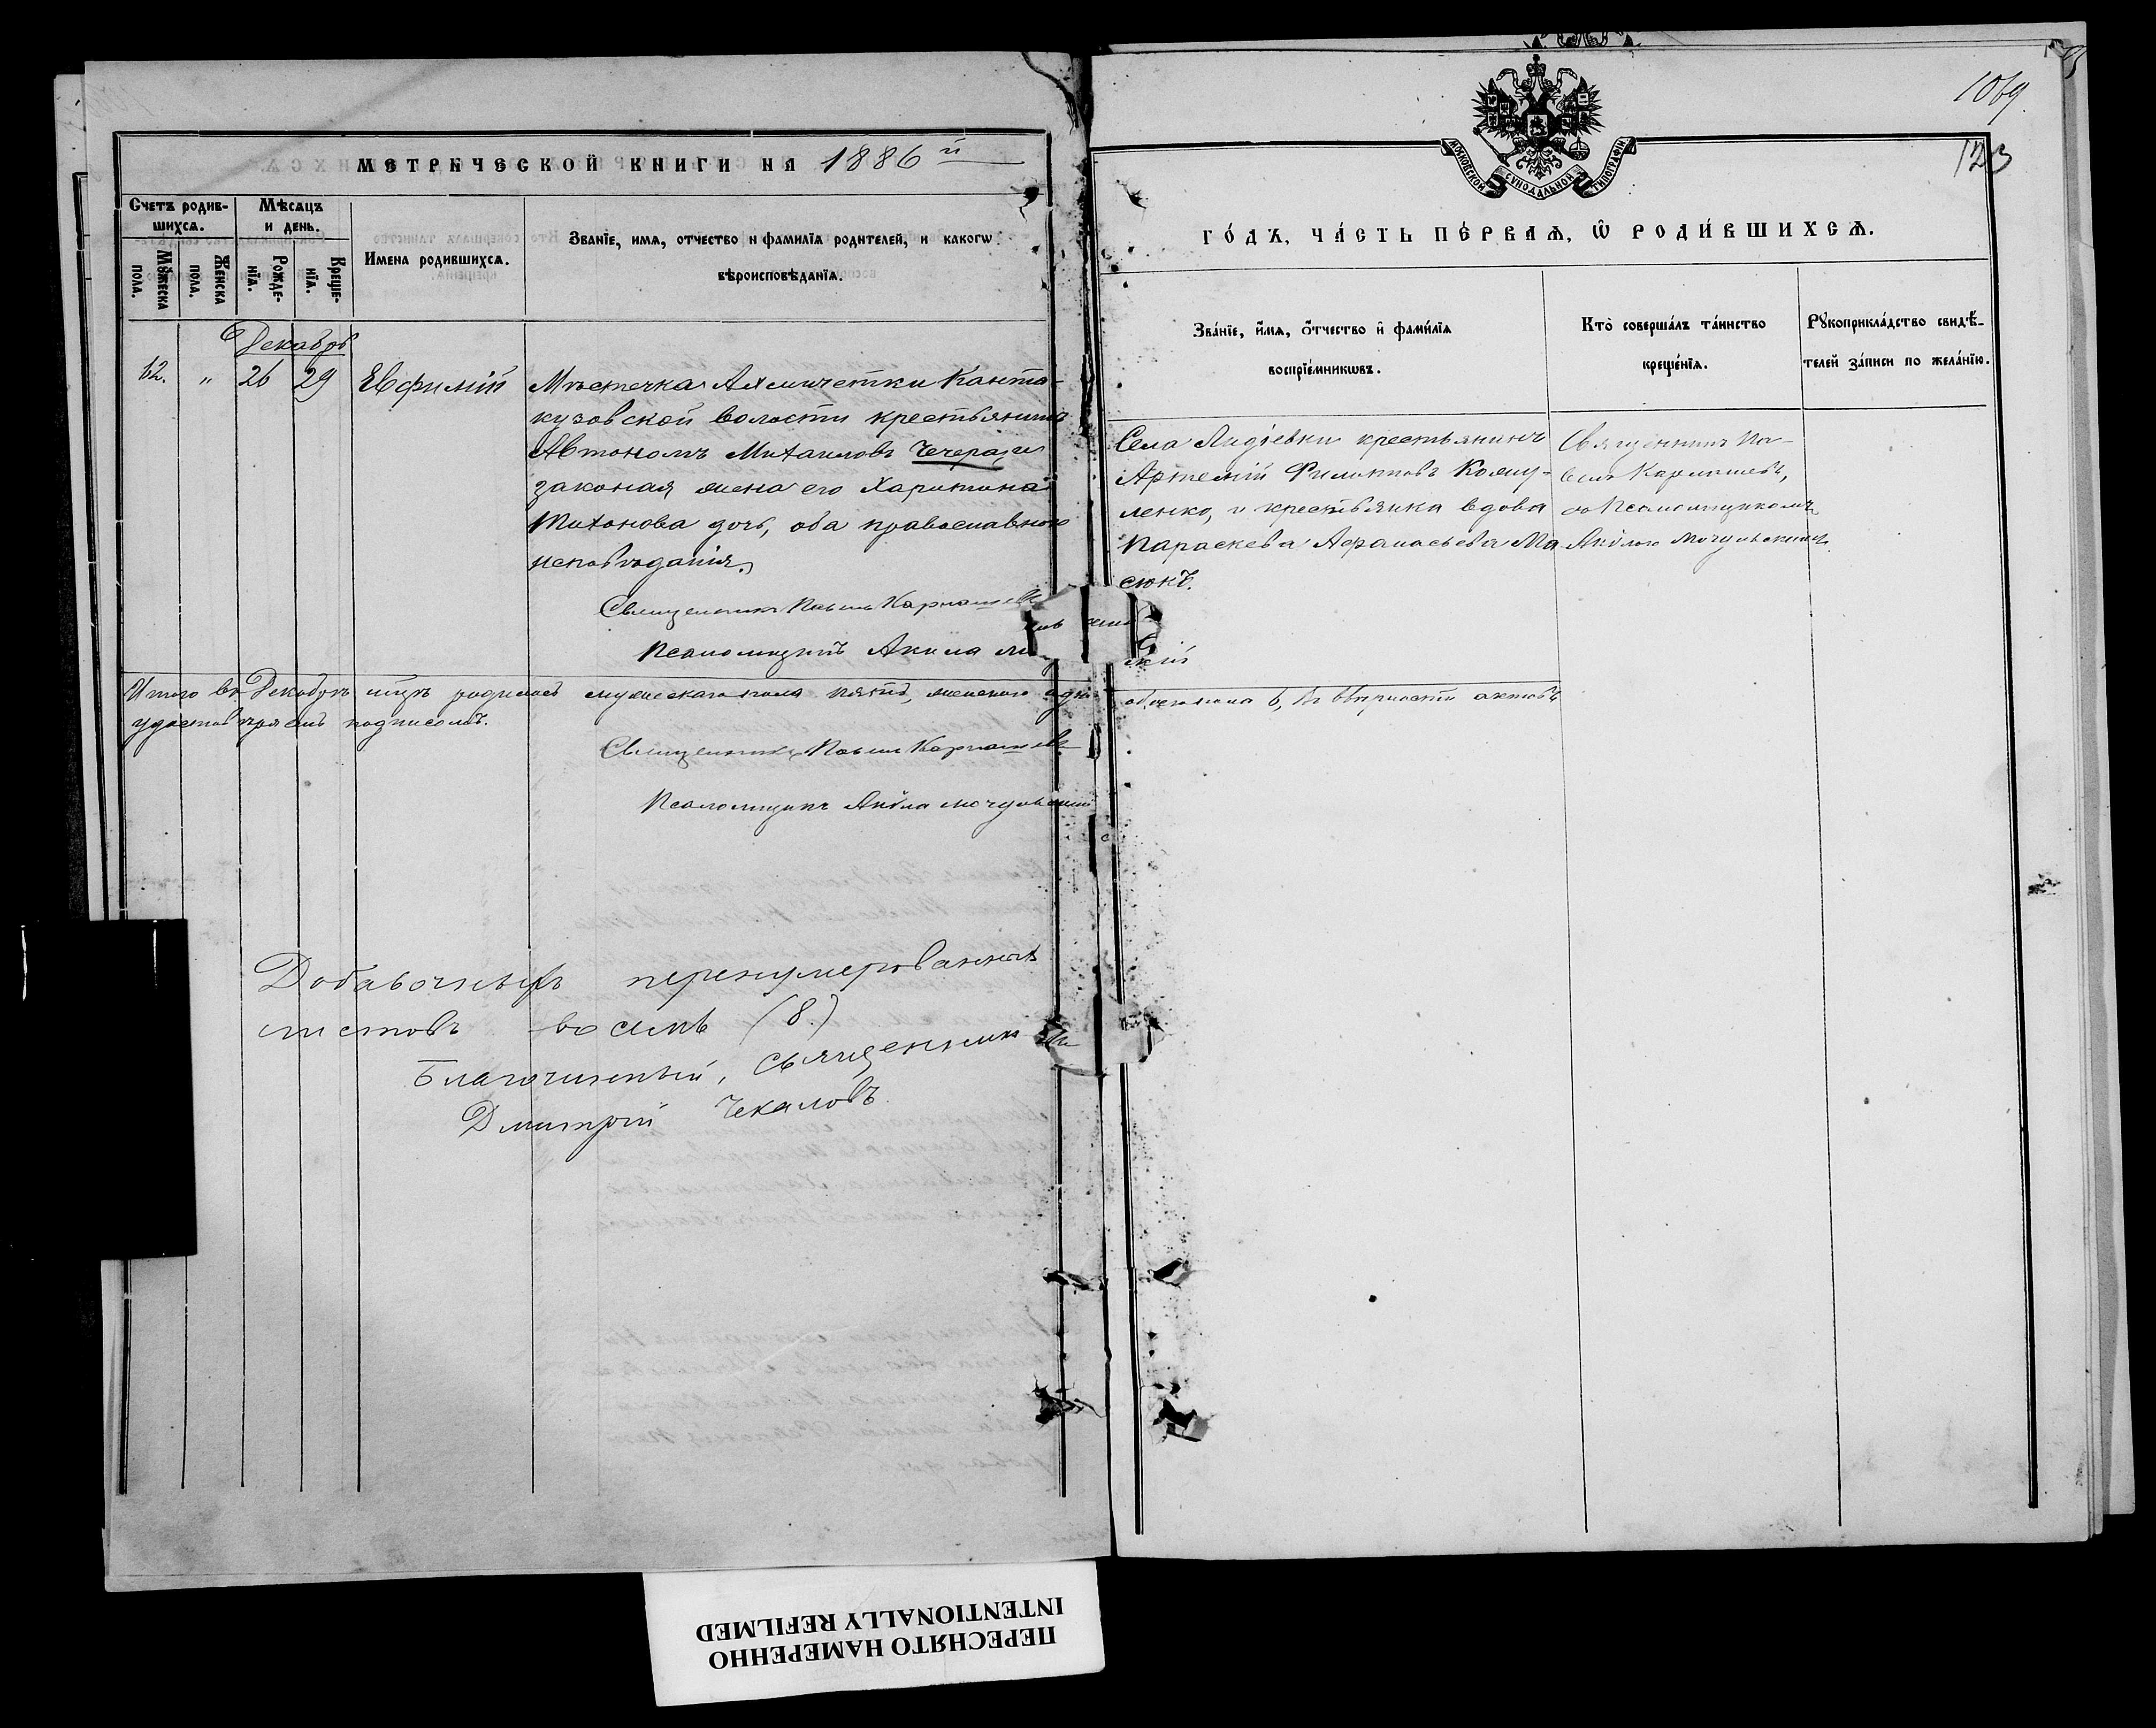 МЕТРИЧЕСКОЙ КНИГИ НА 1886й
Счетъ родив-
шихся.
Мѣсяцъ
и день.
Мꙋжеска
пола.
Женска
пола.
Рожде-
нїя.
Креще-
нїя.
Имена родившихся.
Званїе, имя, отчество и фамилїя родителей, и какогѡ
вѣроисповѣданїя.
Декабрь
62. „ 26 29 Евфимій
Мѣстечка Ахмечетки Канта-
кузовской волости крестьянинъ
Автономъ Михаиловъ Чечера, и
законая жена его Харитина
Тихонова дочь, оба православного
исповѣданія.
Священникъ Павелъ Карпашевъ
Псаломщикъ Акила
скій
Итого въ Декабрѣ родилось мужескаго пола пять, женского
обоегопола 6, въ вѣрности актовъ
удостовѣряемъ подписомъ.
Священникъ Павелъ Карпашевъ
Псаломщикъ Акѵла Мочульскій
Добавочныхъ перенумерованныхъ
листовъ восемь (8.)
Благочинный, священникъ
Дмитрій Чекаловъ.
1069
123
МОСКОВСКОЙ СѴНОДАЛЬНОЙ ТИПОГРАФІИ
ГО́ДЪ, ЧА́СТЬ ПЕ́РВАЯ, Ѿ РОДИ́ВШИХСЯ.
Зва́нїе, и́мя, о́тчество и фами́лїя
воспрїе́мникѡвъ.
Кто̀ соверша́лъ та́инство
креще́нїя.
Рꙋкоприкла́дство свидѣ́-
телей за́писи по жела́нїю.
Села Лидіевки крестьянинъ
Артемій Филиповъ Колту-
ленко, и крестьянка вдова
Параскева Афанасьева Ма-
сюкъ.
Священникъ Па-
велъ Карпашевъ,
съ Псаломщикомъ
Акѵлою Мочульскимъ.
ПЕРЕСНЯТО НАМЕРЕННО
INTENTIONALLY REFILMED